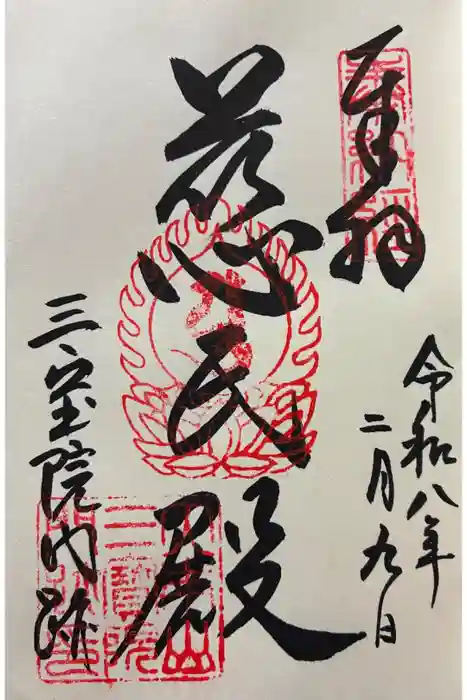 奉拝
令和八年
二月九日
慈氏殿
三宝院門跡
三寳院